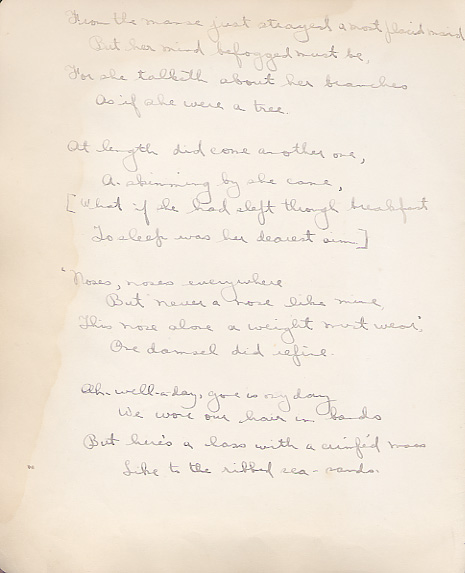 From the manse just strayed a most placid maid
But her mind befogged must be,
For she talketh about her branches
As if she were a tree.
At length did come another one,
A-skimming by she came,
[What if she had slept through breakfast
To sleep was her dearest aim.]
"Noses, noses everywhere
But never a nose like mine,
This nose alone a weight must wear",
One damsel did refine.
Ah-well-a-day, gone is my day
We wore our hair in bands
But here's a lass with a crimped mass
Like to the ribbed sea-sands.